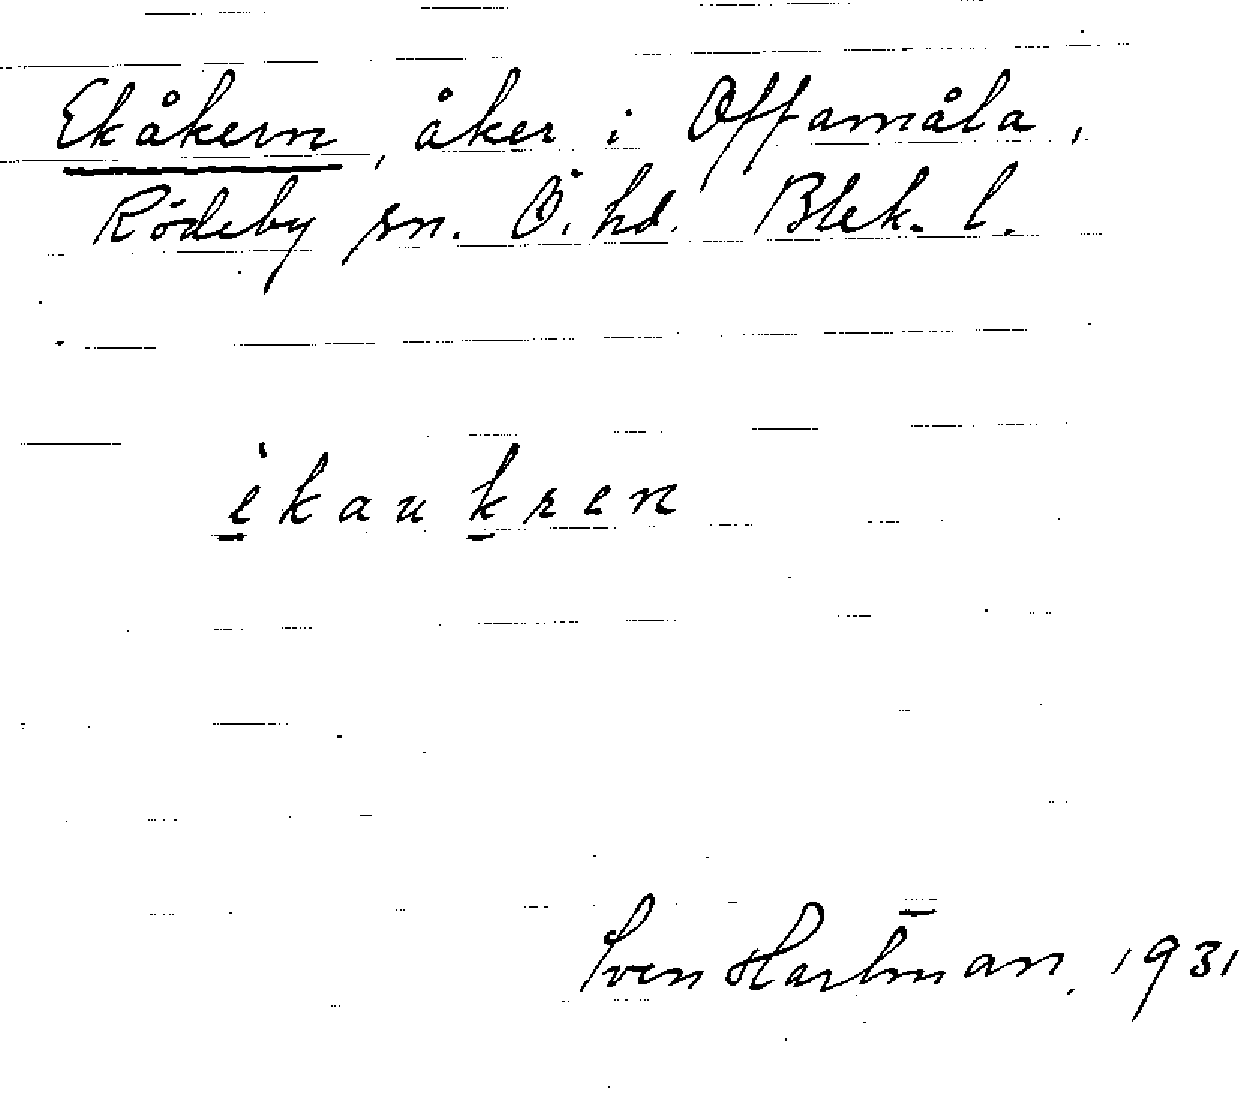 Ekåkern, åker i Offamåla,
Rödeby sn. Ö. hd. Blek. l.
èkaukren
Sven Hartman. 1931